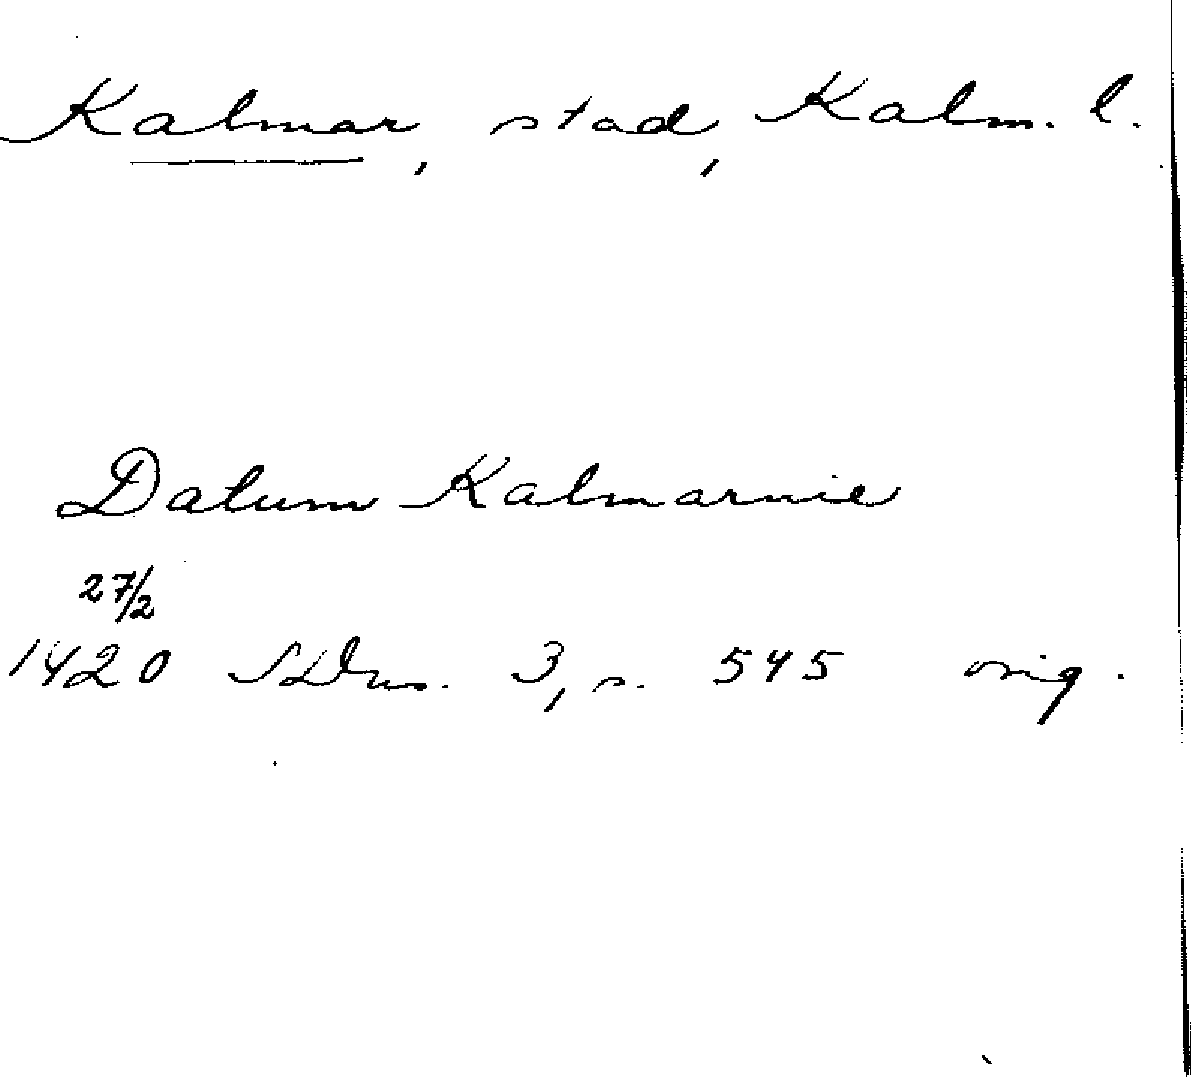 Kalmar, stad, Kalm. l.
Datum Kalmarnie
27/2
1420 SDns. 3, s. 545 orig.